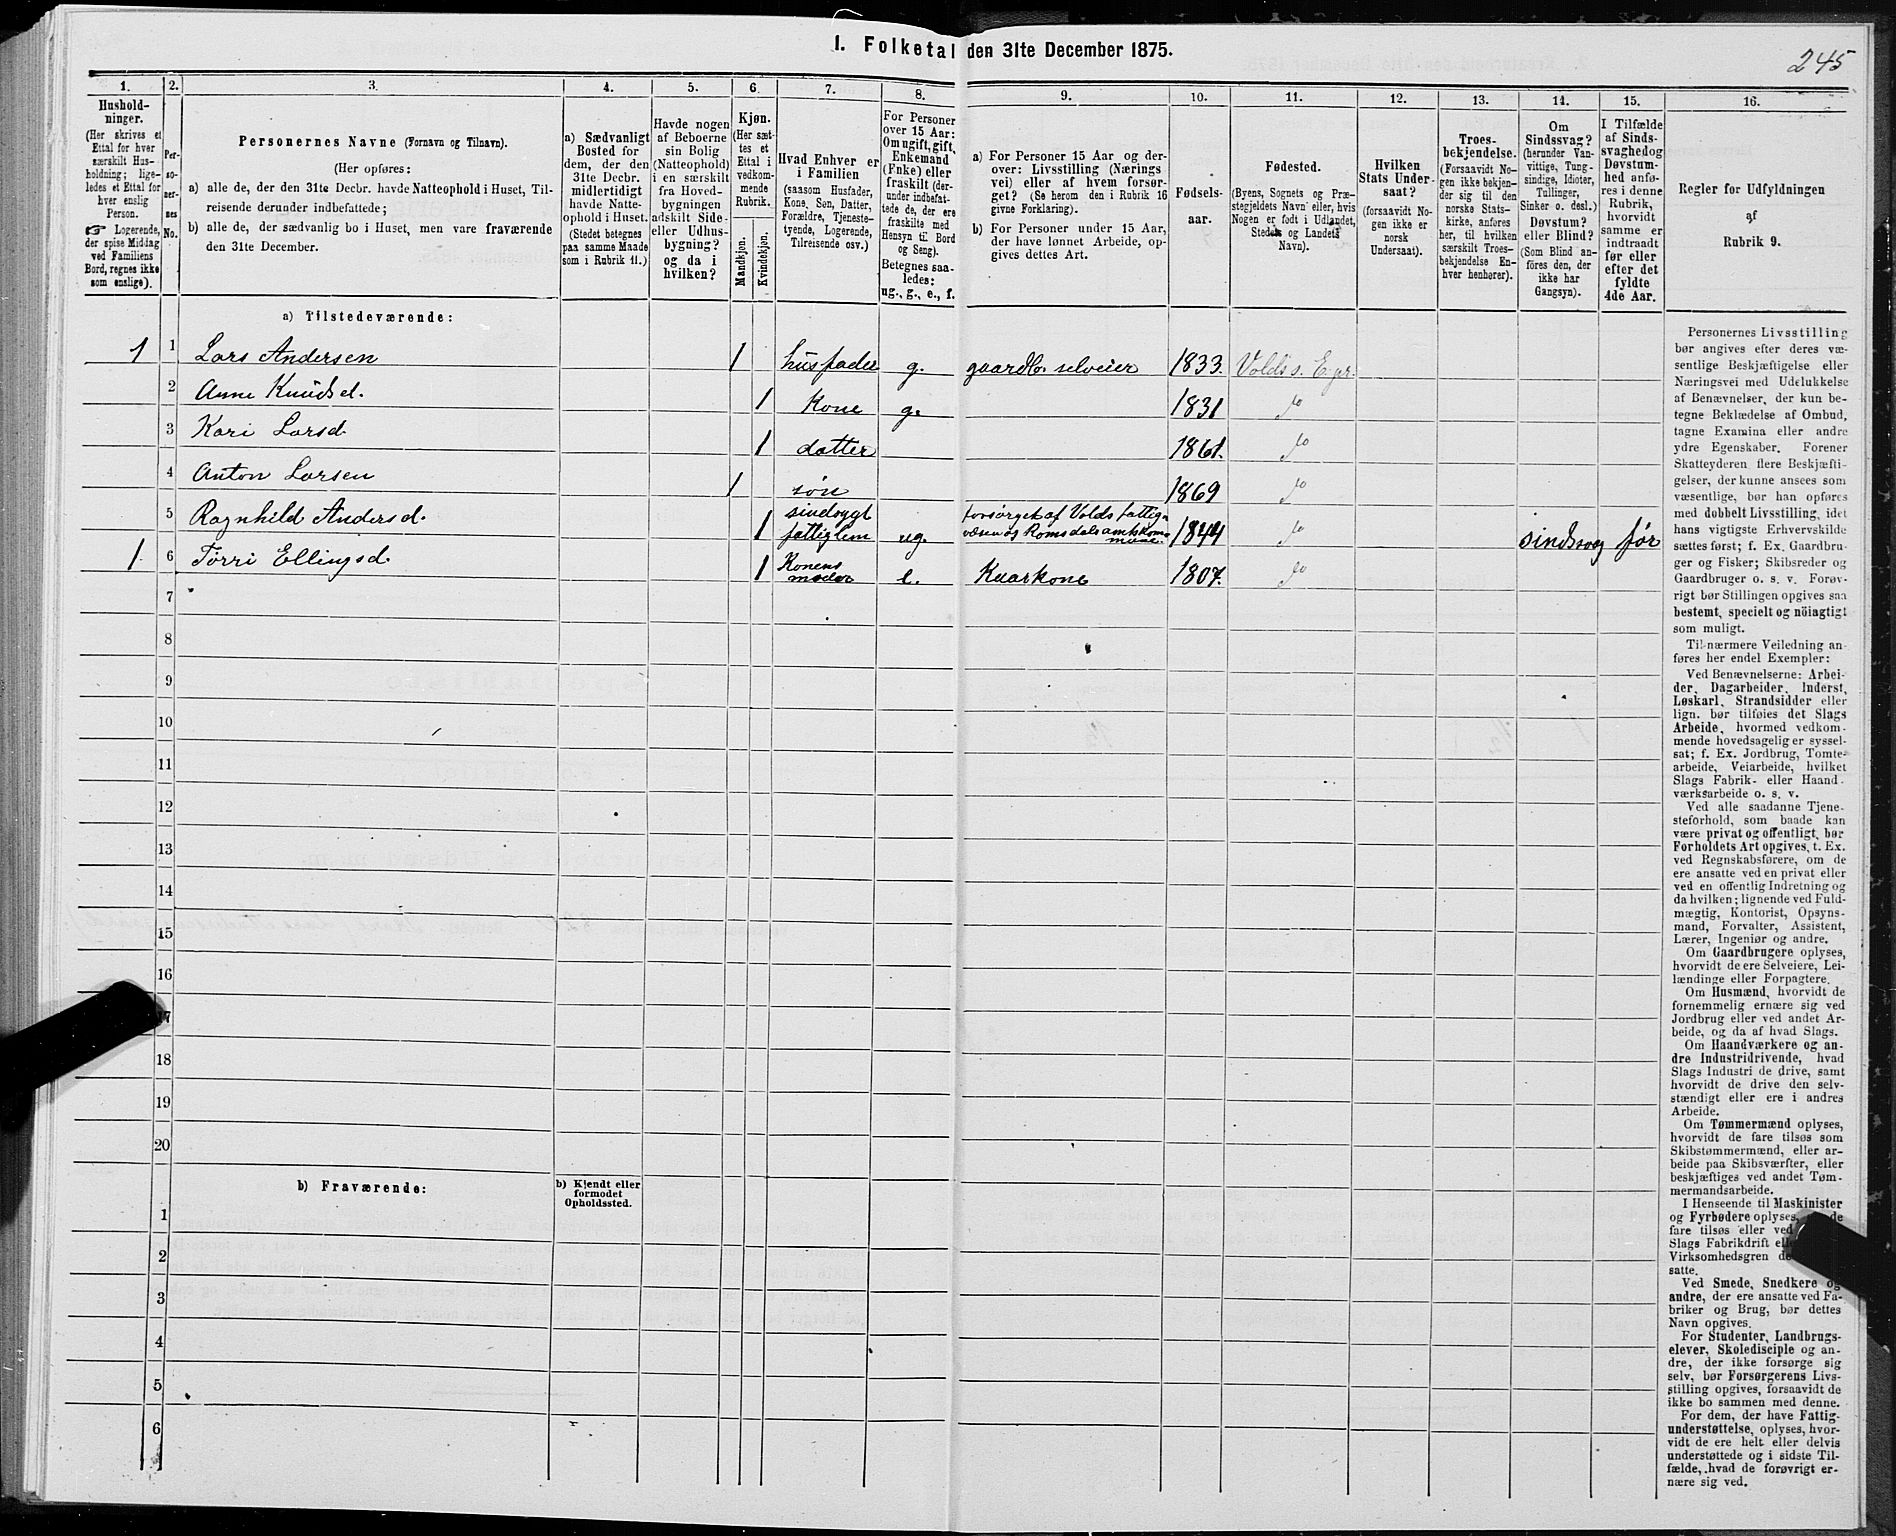 I. Folketal den 31te December 1875.
245
1.
Hushold-
ninger.
(Her skrives et
Ettal for hver
særskilt Hus-
holdning; lige-
ledes et Ettal for
hver enslig
Person.
☞ Logerende,
der spise Middag
ved Familiens
Bord, regnes ikke
som enslige).
2.
Per-
so-
ner-
nes
No.
3.
Personernes Navne (Fornavn og Tilnavn).
(Her opføres:
a) alle de, der den 31te Decbr. havde Natteophold i Huset, Til-
reisende derunder indbefattede;
b) alle de, der sædvanlig bo i Huset, men vare fraværende
den 31te December.
4.
a) Sædvanligt
Bosted for
dem, der den
31te Decbr.
midlertidigt
havde Natte-
ophold i Huset.
(Stedet betegnes
paa samme Maade
som i Rubrik 11.)
5.
Havde nogen
af Beboerne
sin Bolig
(Natteophold)
i en særskilt
fra Hoved-
bygningen
adskilt Side-
eller Udhus-
bygning?
og da i
hvilken?
6.
Kjøn.
(Her sæt-
tes et
Ettal i
vedkom-
mende
Rubrik.
Mandkjøn.
Kvindekjøn.
7.
Hvad Enhver er
i Familien
(saasom Husfader,
Kone, Søn, Datter,
Forældre, Tjeneste-
tyende, Logerende,
Tilreisende osv.)
8.
For Personer
over 15 Aar:
Om ugift, gift,
Enkemand
(Enke) eller
fraskilt (der-
under indbefat-
tede de, der ere
fraskilte med
Hensyn til Bord
og Seng).
Betegnes saa-
ledes:
ug., g., e., f.
9.
a) For Personer 15 Aar og der-
over: Livsstilling (Nærings
vei) eller af hvem forsør-
get? (Se herom den i Rubrik 16
givne Forklaring).
b) For Personer under 15 Aar,
der have lønnet Arbeide, op-
gives dettes Art.
10.
Fødsels-
aar.
11.
Fødested.
(Byens, Sognets og Præ-
stegjeldets Navn eller, hvis
Nogen er født i Udlandet,
Stedets og Landets
Navn).
12.
Hvilken
Stats Under-
saat?
(forsaavidt No-
gen ikke er
norsk
Undersaat).
13.
Troes-
bekjendelse.
(Forsaavidt No-
gen ikke bekjen-
der sig til den
norske Stats-
kirke, anføres
her, til hvilken
særskilt Troes-
bekjendelse En-
hver henhører).
14.
Om
Sindssvag?
(herunder Van-
vittige, Tung-
sindige, Idioter,
Tullinger,
Sinker o. desl.)
Døvstum?
eller Blind?
(Som Blind an-
føres den, der
ikke har
Gangsyn).
15.
I Tilfælde
af Sinds-
svaghed og
Døvstum-
hed anfø-
res i denne
Rubrik,
hvorvidt
samme er
indtraadt
før eller
efter det
fyldte
4de Aar.
16.
Regler for Udfyldningen
af
Rubrik 9.
a) Tilstedeværende:
1 1 Lars Andersen 1 husfader g. gaardbr. selveier 1833. Volds s. E. pr.
2 Anne Knudsd. 1 Kone g. 1831 do
3 Kari Larsd 1 datter 1861. do
4 Anton Larsen 1 søn 1869 do
5 Ragnhild Andersd. 1 sindssygt fattiglem ug. forsørget af Volds fattig- væsen og Romsdals amtskom- mune. 1844 do sindssvag før
1 6 Tørri Ellingsd. 1 Konens moder e. Kaarkone 1807. do
7
8
9
10
11
12
13
14
15
16
17
18
19
20
b) Fraværende:
b) Kjendt eller
formodet
Opholdssted.
1
2
3
4
5
6
Personernes Livsstilling
bør angives efter deres væ-
sentlige Beskjæftigelse eller
Næringsvei med Udelukkelse
af Benævnelser, der kun be-
tegne Beklædelse af Ombud,
tagne Examina eller andre
ydre Egenskaber. Forener
Skatteyderen flere Beskjæfti-
gelser, der kunne ansees som
væsentlige, bør han opføres
med dobbelt Livsstilling, idet
hans vigtigste Erhvervskilde
sættes først; f. Ex. Gaardbru-
ger og Fisker; Skibsreder og
Gaardbruger o. s. v. Forøv-
rigt bør Stillingen opgives saa
bestemt, specielt og nöiagtigt
som muligt.
Til nærmere Veiledning an-
føres her endel Exempler:
Ved Benævnelserne: Arbei-
der, Dagarbeider, Inderst,
Løskarl, Strandsidder eller
lign. bør tilføies det Slags
Arbeide, hvormed vedkom-
mende hovedsagelig er syssel-
sat; f. Ex. Jordbrug, Tomte-
arbeide, Veiarbeide, hvilket
Slags Fabrik- eller Haand-
værksarbeide o. s. v.
Ved alle saadanne Tjene-
steforhold, som baade kan
være privat og offentligt, bør
Forholdets Art opgives, f. Ex.
ved Regnskabsførere, om de
ere ansatte ved en privat eller
ved en offentlig Indretning og
da hvilken; lignende ved Fuld-
mægtig, Kontorist, Opsyns-
mand, Forvalter, Assistent,
Lærer, Ingeniør og andre.
Om Gaardbrugere oplyses,
hvorvidt de ere Selveiere, Lei-
lændinge eller Forpagtere.
Om Husmænd, hvorvidt de
fornemmelig ernære sig ved
Jordbrug eller ved andet Ar-
beide, og da af hvad Slags.
Om Haandværkere og an-
dre Industridrivende, hvad
Slags Industri de drive, samt
hvorvidt de drive den selv-
stændigt eller ere i andres
Arbeide.
Om Tømmermænd oplyses,
hvorvidt de fare tilsøs som
Skibstømmermænd, eller ar-
beide paa Skibsværfter, eller
beskjæftiges ved andet Tøm-
mermandsarbeide.
I Henseende til Maskinister
og Fyrbødere oplyses, de
fare tilsøs eller ved
Slags Fabrikdrift
Virksomhedsgren
satte.
Ved Smede, Snedkere og
andre, der ere ansatte ved Fa-
briker og Brug, bør dettes
Navn opgives.
For Studenter, Landbrugs-
elever, Skoledisciple og an-
dre, der ikke forsørge sig
selv, bør Forsørgerens Livs-
stilling opgives, forsaavidt de
ikke bo sammen med denne.
For dem, der have Fattig-
understøttelse, oplyses, hvor-
vidt de ere helt eller delvis
understøttede og i sidste Til-
fælde, hvad de forøvrigt er-
nære sig ved.